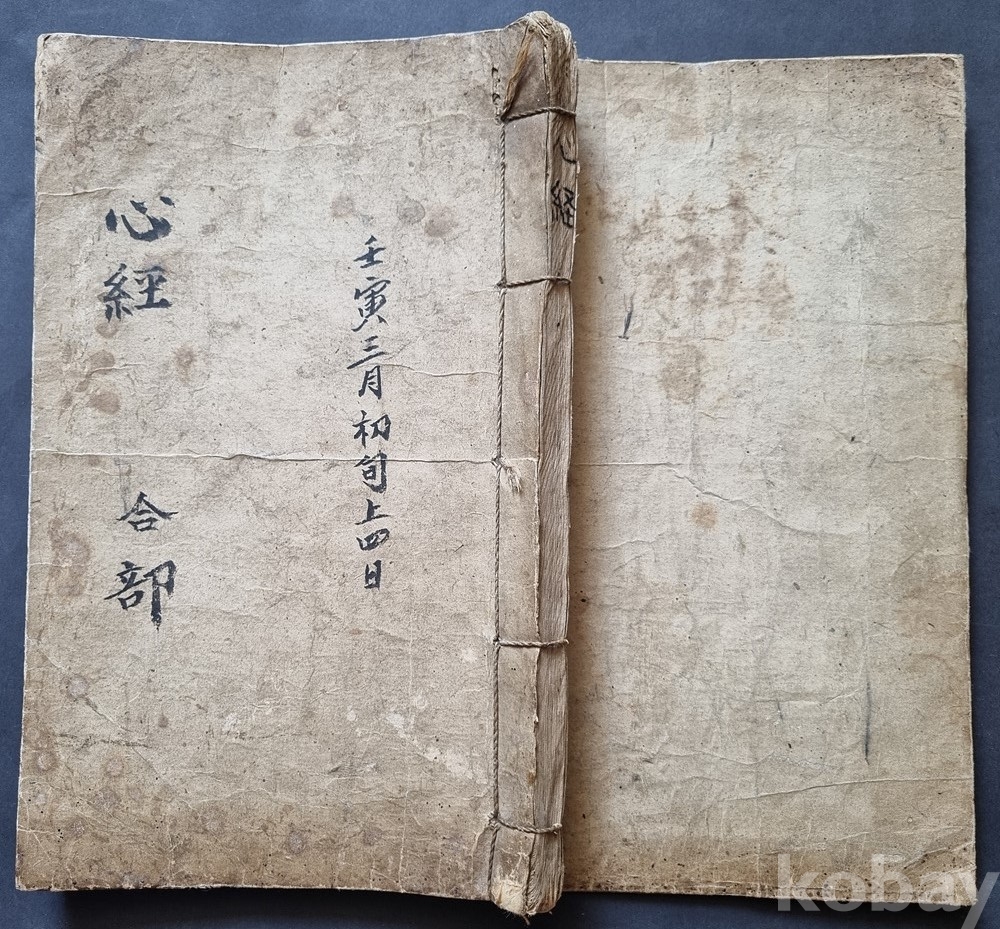 心經 合部
壬寅三月初旬上四日
心経
kobay